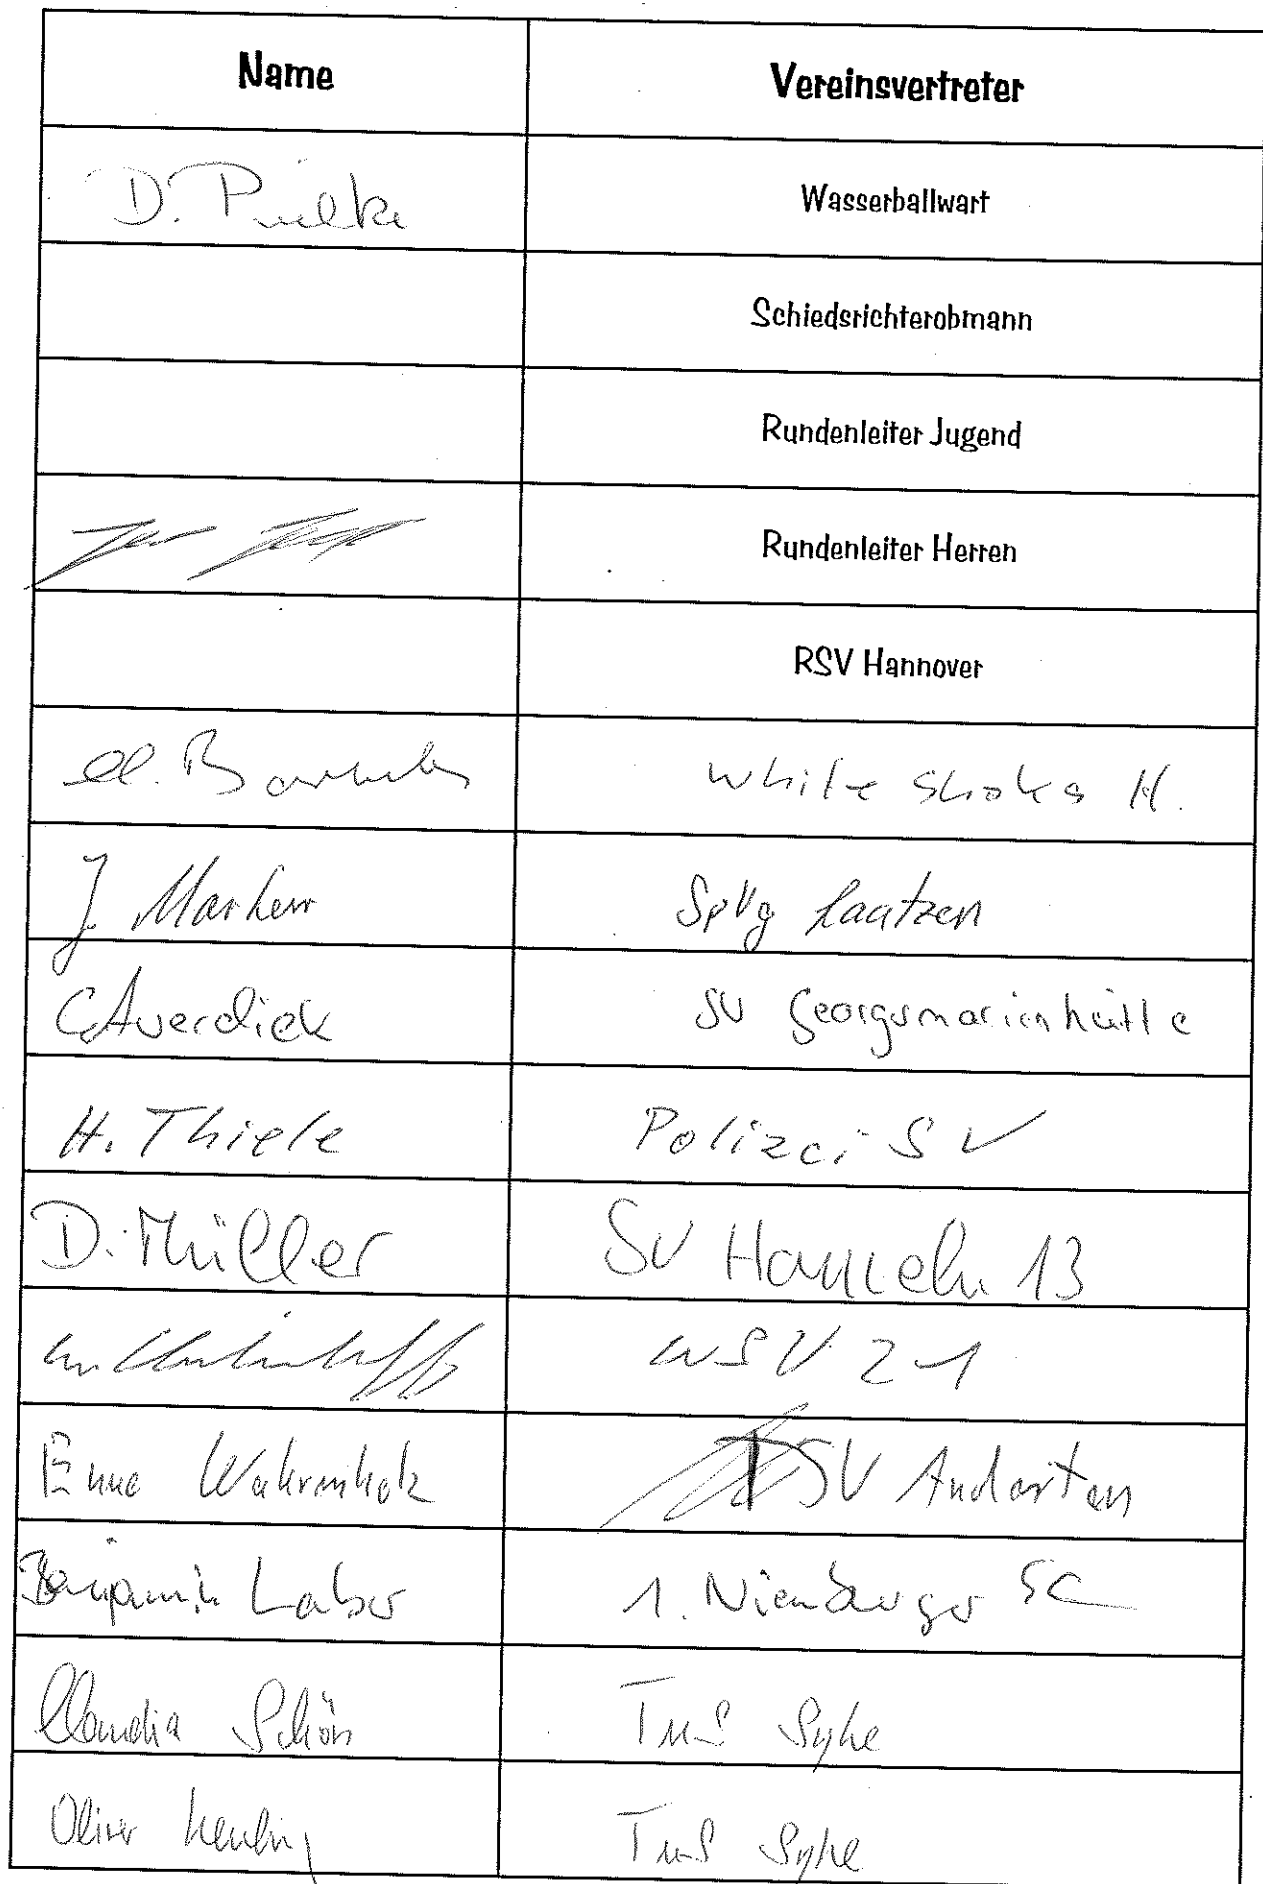 Name Vereinsvertreter
D. Wasserballwart
Schiedsrichterobmann
Rundenleiter Jugend
Rundenleiter Herren
RSV Hannover
White Sharks H.
SpVg Laatzen
C. Averdiek SV Georgsmarienhütte
H. Thiele Polizei SV
D. Müller SV Hameln 13
WSV 21
Enno Wahrenholz TSV Anderten
Benjamin 1. Nienburger SC
Claudia Schön TuS Syke
Oliver TuS Syke